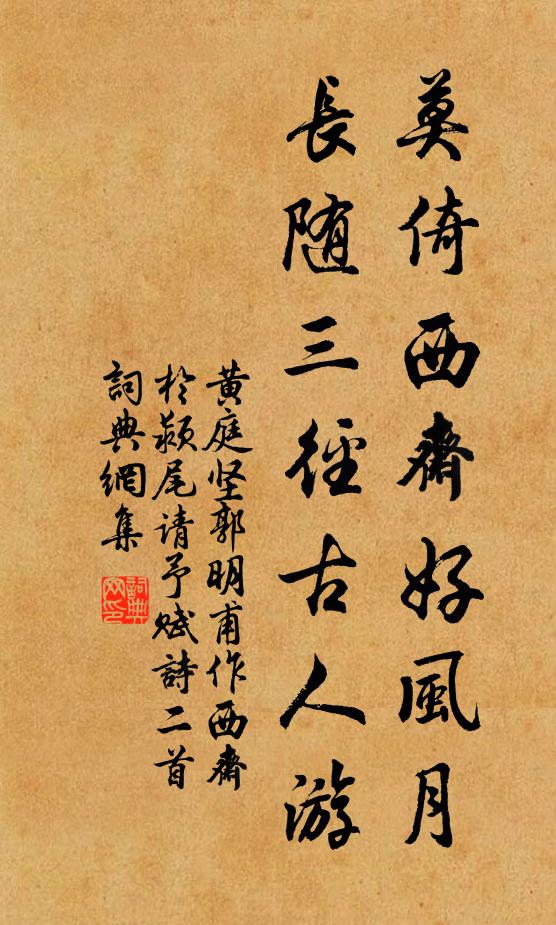 莫倚西齋好風月
長随三徑古人游
黄庭坚郭明甫作西齋
於潁尾请予赋詩二首
詞典網集
詞典網印